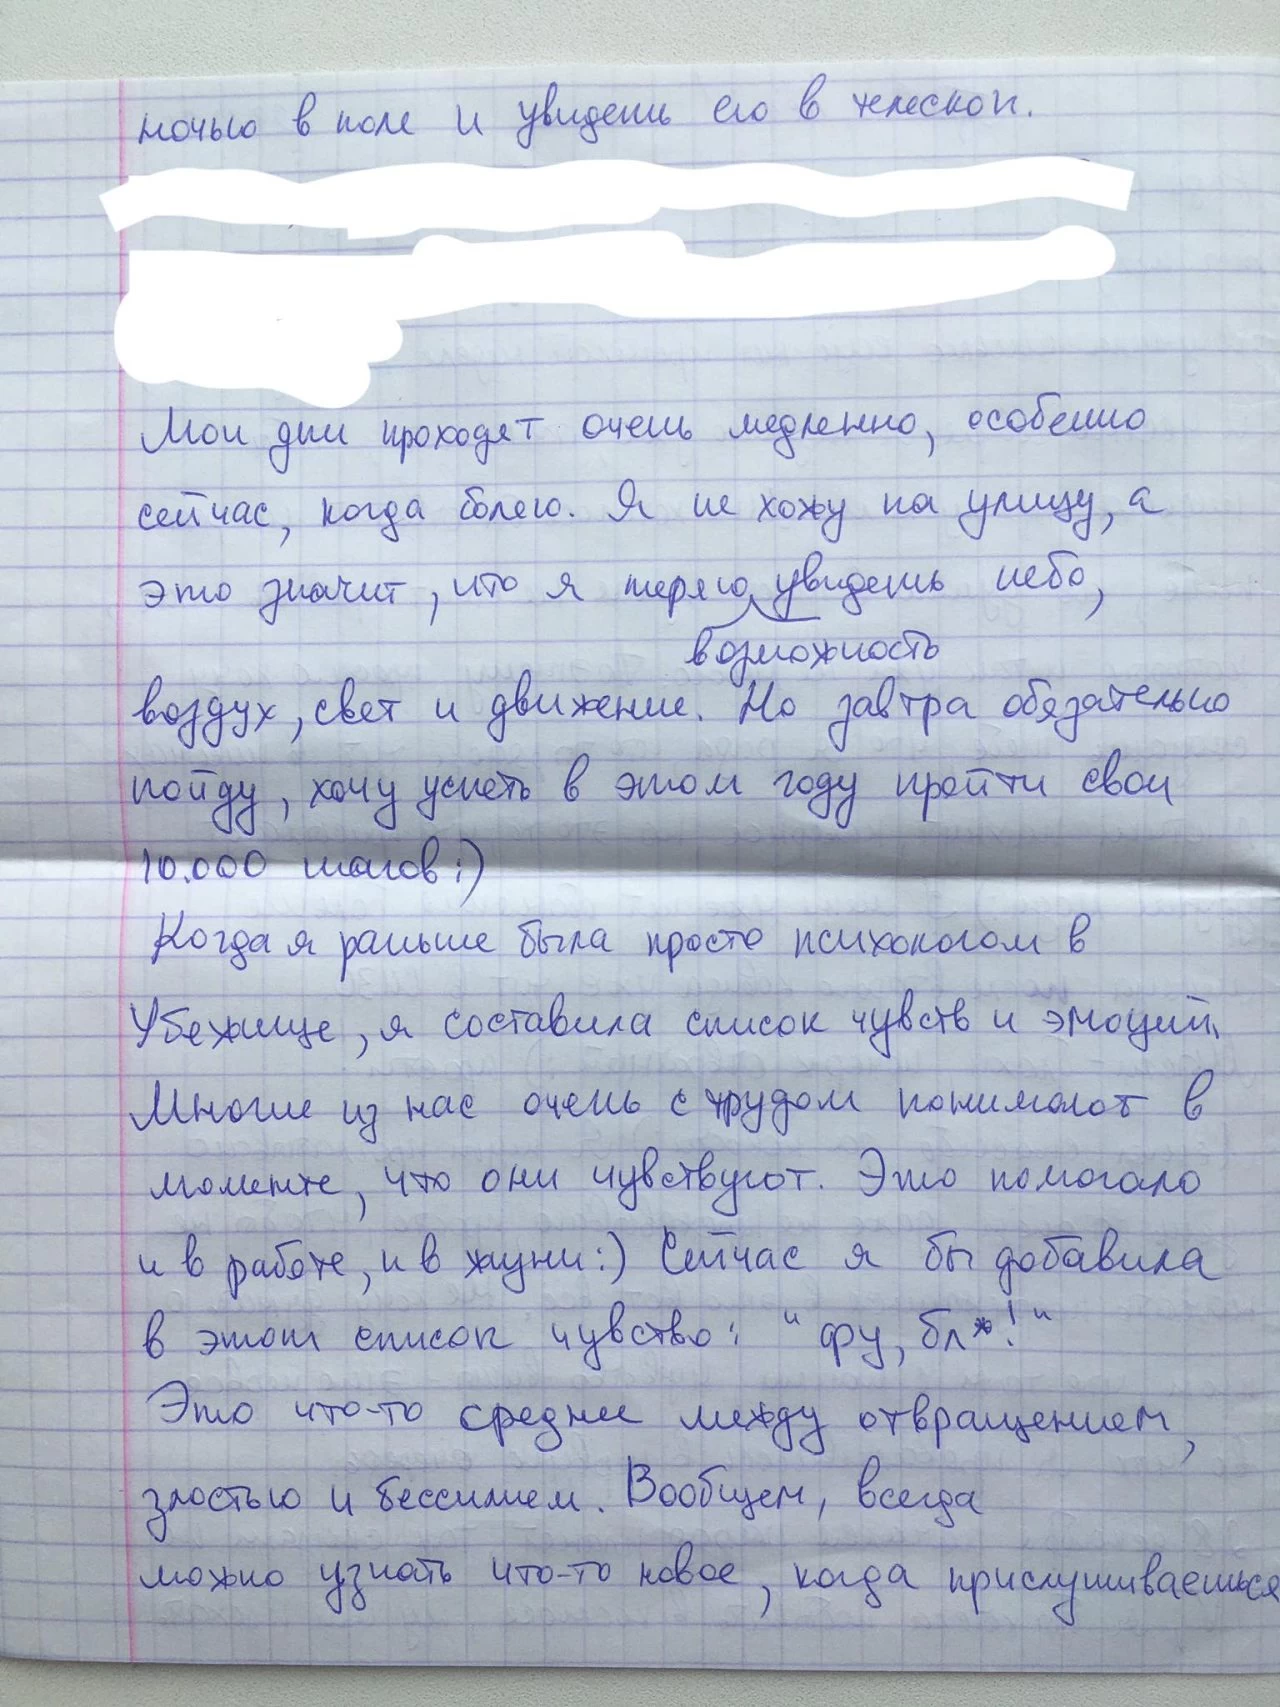 ночью в поле и увидеть его в телескоп.
Мои дни проходят очень медленно, особенно
сейчас, когда болею. Я не хожу на улицу, а
это значит, что я теряю увидеть небо,
возможность
воздух, свет и движение. Но завтра обязательно
пойду, хочу успеть в этом году пройти свои
10.000 шагов :)
Когда я раньше была просто психологом в
Убежище, я составила список чувств и эмоций.
Многие из нас очень с трудом понимают в
моменте, что они чувствуют. Это помогало
и в работе, и в жизни :) Сейчас я бы добавила
в этот список чувство: "фу, бл*!"
Это что-то средне между отвращением,
злостью и бессилием. Вообщем, всегда
можно узнать что-то новое, когда прислушиваешься